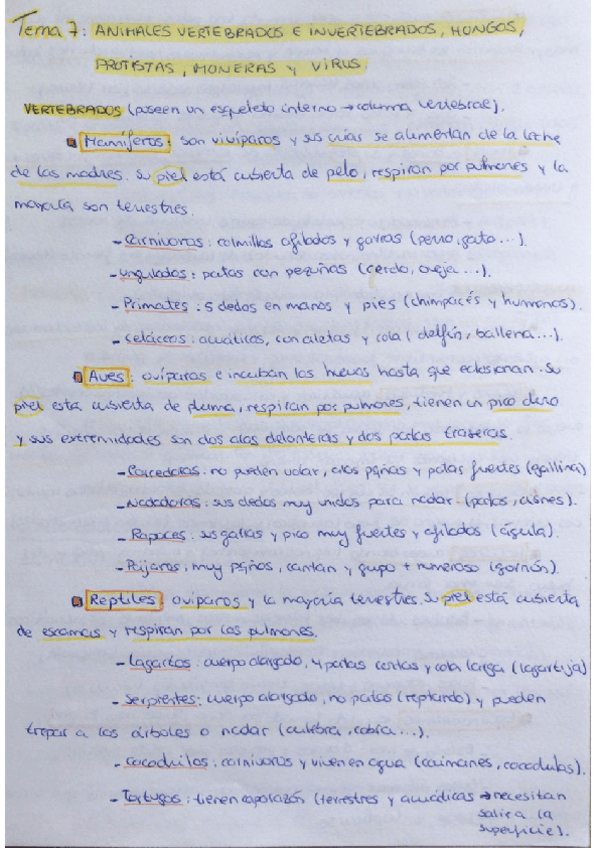 Tema 7: ANIMALES VERTEBRADOS E INVERTEBRADOS, HONGOS,
PROTISTAS, MONERAS Y VIRUS
VERTEBRADOS (poseen un esqueleto interno → columna vertebral).
Mamíferos: son vivíparos y sus crías se alimentan de la leche
de las madres. Su piel está cubierta de pelo, respiran por pulmones y la
mayoría son terrestres.
- Carnívoros: colmillos afilados y garras (perro, gato...).
- Ungulados: patas con pezuñas (cerdo, oveja...).
- Primates: 5 dedos en manos y pies (chimpacés y humanos).
- Cetáceos: acuáticos, con aletas y cola (delfín, ballena...).
Aves: ovíparas e incuban los huevos hasta que eclosionan. Su
piel está cubierta de pluma, respiran por pulmones, tienen un pico duro
y sus extremidades son dos alas delanteras y dos patas traseras.
- Corredoras: no pueden volar, alas pqñas y patas fuertes (gallina)
- Nadadoras: sus dedos muy unidos para nadar (patos, cisnes).
- Rapaces: sus garras y pico muy fuertes y afilados (águila).
- Pájaros: muy pqños, cantan y grupo + numeroso (gorrión).
Reptiles: ovíparos y la mayoría terrestres. Su piel está cubierta
de escamas y respiran por los pulmones.
- Lagartos: cuerpo alargado, 4 patas cortas y cola larga (lagartija)
- Serpientes: cuerpo alargado, no patas (reptando) y pueden
trepar a los árboles o nadar (culebra, cobra...).
- Cocodrilos: carnívoros y viven en agua (caimanes, cocodrilos).
- Tortugas: tienen caparazón (terrestres y acuáticas → necesitan
salir a la
superficie).